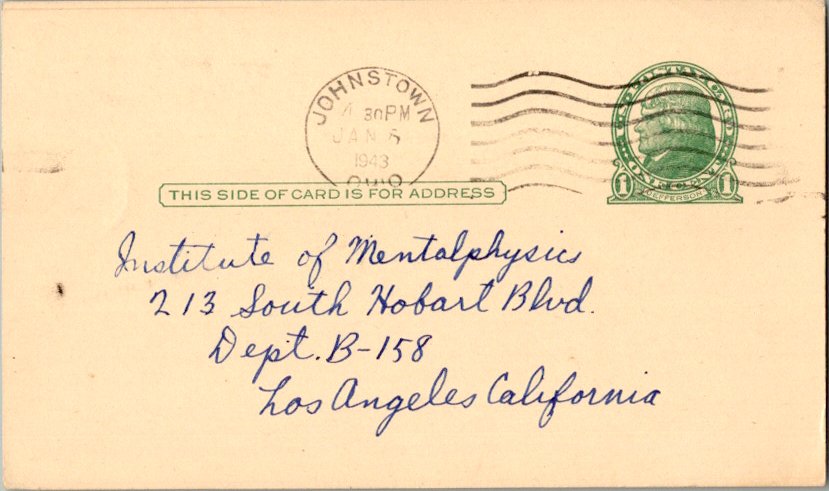 JOHNSTOWN
4 30 PM
JAN 5
1943
OHIO
1 JEFFERSON 1
THIS SIDE OF CARD IS FOR ADDRESS
Institute of Mentalphysics
213 South Hobart Blvd.
Dept. B-158
Los Angeles California